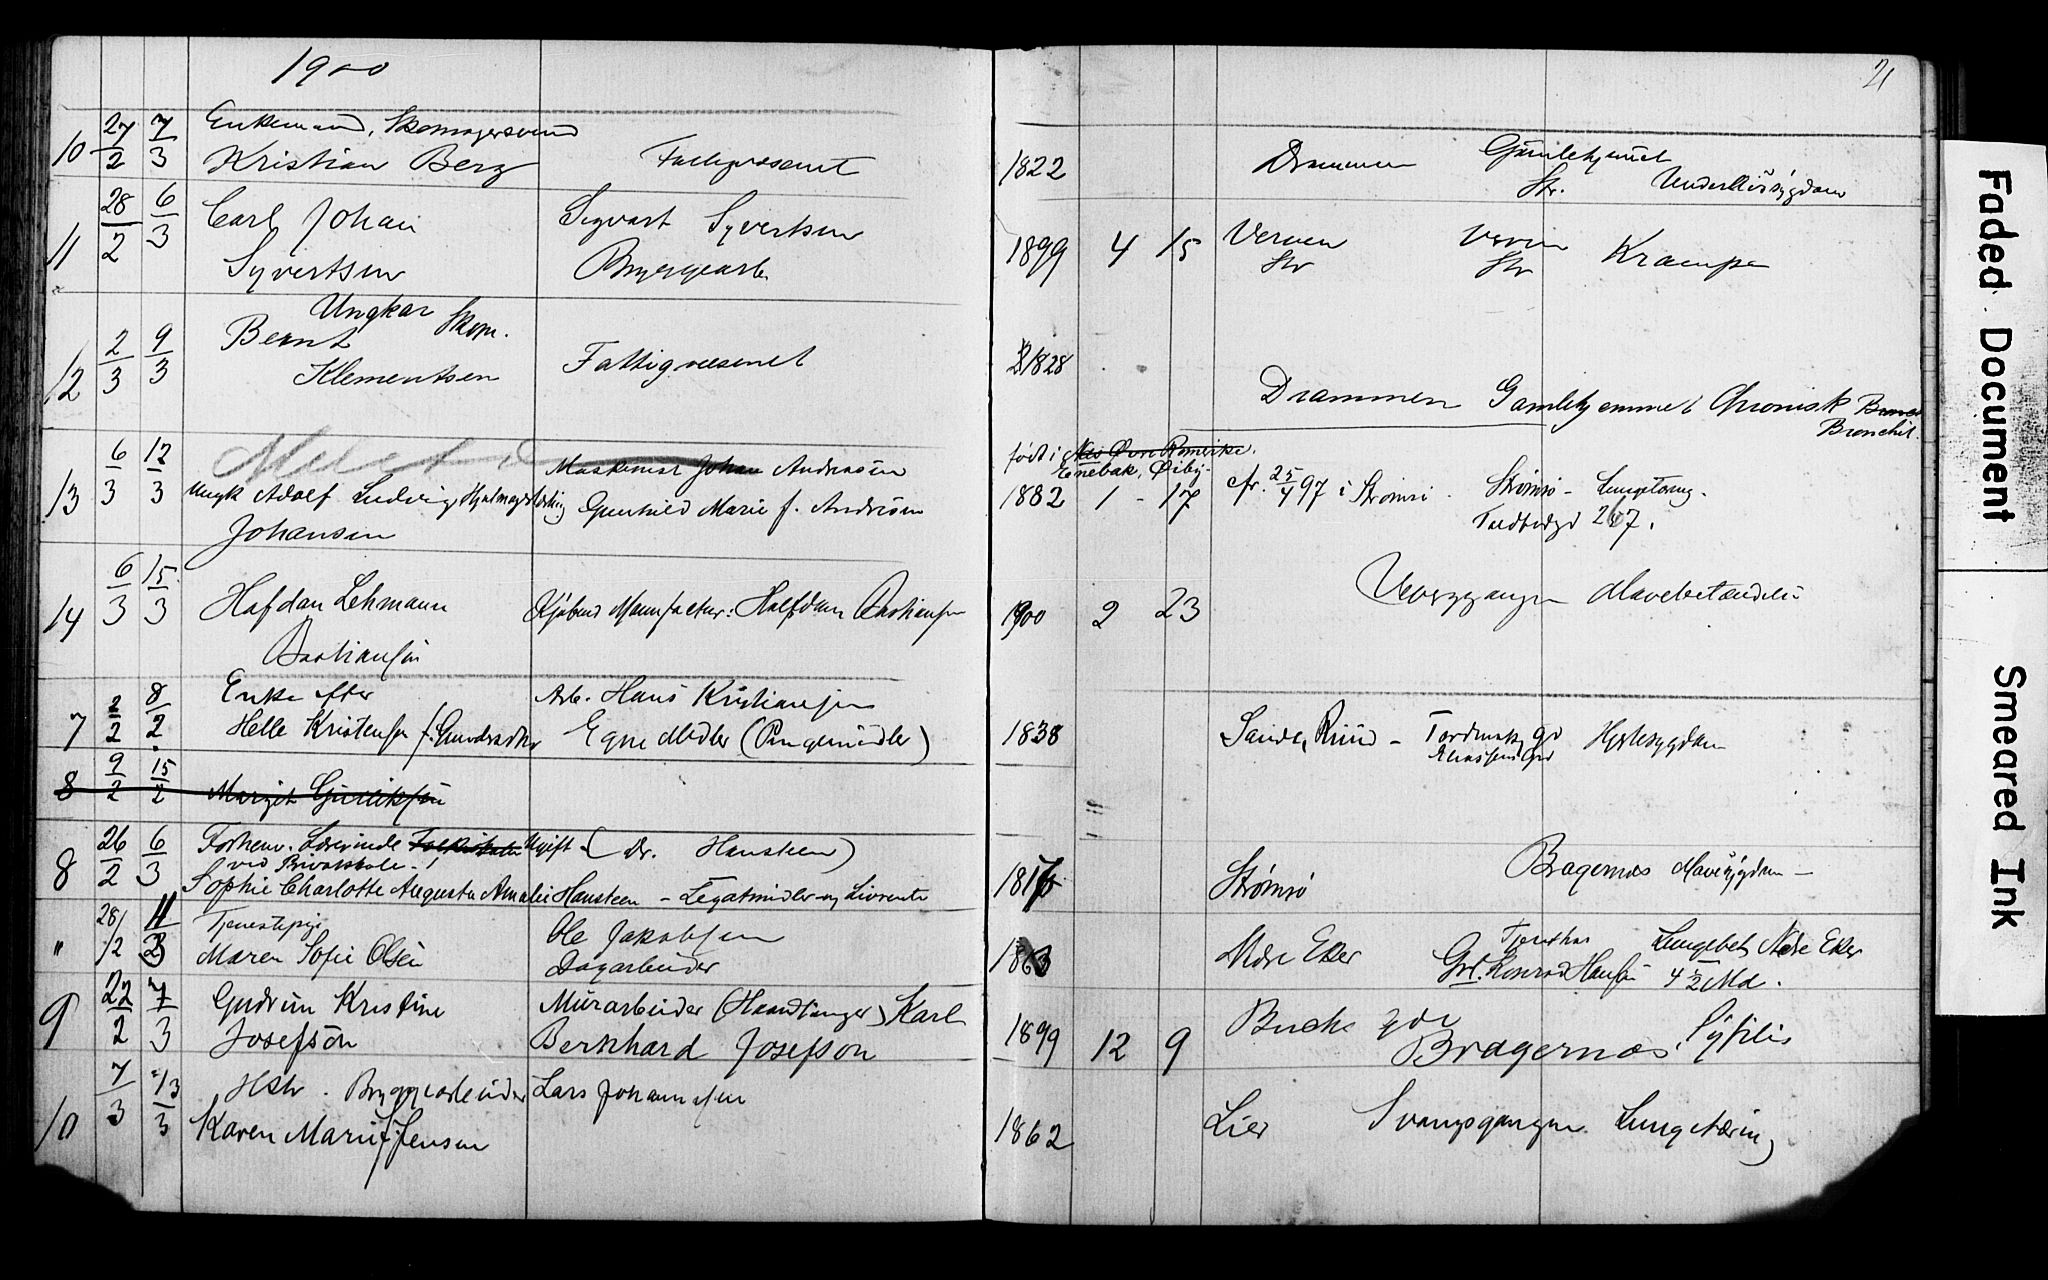 1900
21
10 27/2 7/3 Enkemand, Skomagersvend
Kristian Berg Fattigvæsenet 1822 Drammen Gamlehjemmet
Str. Underlivssygdom
11 28/2 6/3 Carl Johan Sigvart Syvertsen 1899 4 15 Verven Verven Krampe
Syvertsen Bryggearb. Str Str
Ungkar Skom.
12 2/3 9/3 Bernt Fattigvæsenet 1828
Klementsen Drammen Gamlehjemmet Chronisk
Bronchit
født i Nes Øvre Romerike.
Enebak, Øiby-
13 6/3 12/3 Maskinist Johan Andreasen
Ungk Adolf Ludvig Hjalmar Gunhild Marie f. Andresen 1882 1 - 17 cfr. 25/4 97 i Strømsø. Strømsø - Lungetæring.
Johansen Toldbodgd 267.
14 6/3 15/3 Hafdan Lehmann Kjøbmd Manufactur: Halfdan Bastiansen 1900 2 23 Vevergangen Mavebetændelse
Bastiansen
7 2/2 8/2 Enke efter Arb. Hans Kristiansen
Helle Kristensen f. Gundersdtr Egne Midler (Pengemidler) 1838 Sande, Ruud - Tordenskj. gd Hjertesygdom
Eliassens Grd
8 9/2 15/2 Margit Gulliksen
8 26/2 6/3 Forhenv. Lærerinde Ugift (Dr. Hansteen)
ved Privatskole
Sophie Charlotte Augusta Amalie Hansteen - Legatmidler og Livrente Strømsø Bragernæs Mavesygdom -
" 28/2 11/3 Tjenestepige Ole Jakobsen
Maren Sofie Olsen Dagarbeider 1863 Nedre Eker Tjenst hos Lungebet. Nedre Eker
Grl. Konrad Hansen 4 1/2 Md.
9 22/2 7/3 Gudrun Kristine Murarbeider (Haandlanger) Karl 1899 12 9 Buchs gde Syfilis
Josefson Bernhard Josefson Bragernæs
10 7/3 13/3 Hstr. Bryggearbeider Lars Johannesen
Karen Marie f. Jensen 1862 Lier Svangsgangen Lungetæring
Faded Document
Smeared Ink